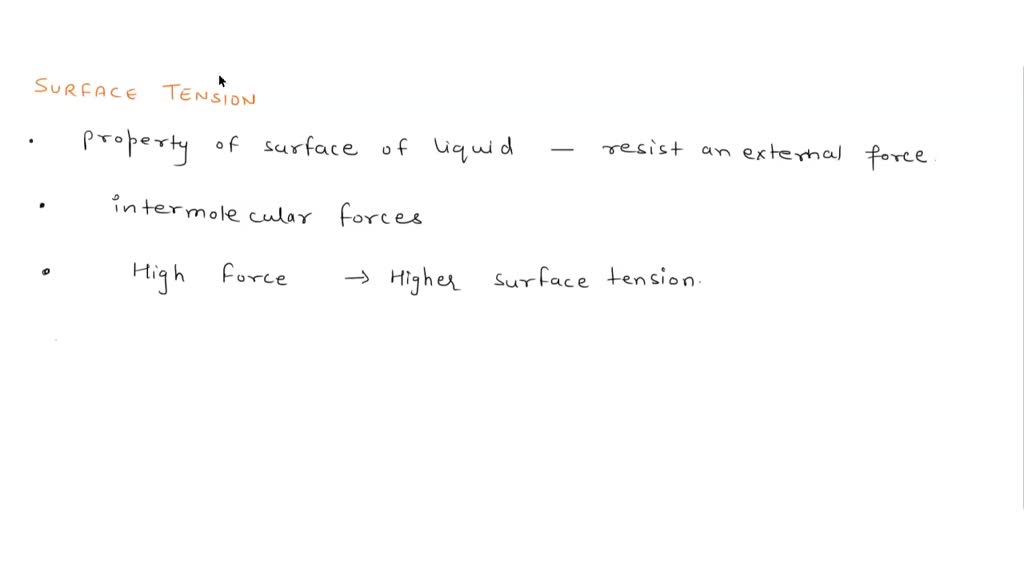 SURFACE TENSION
• property of surface of liquid — resist an external force.
• intermolecular forces
• High force → Higher surface tension.